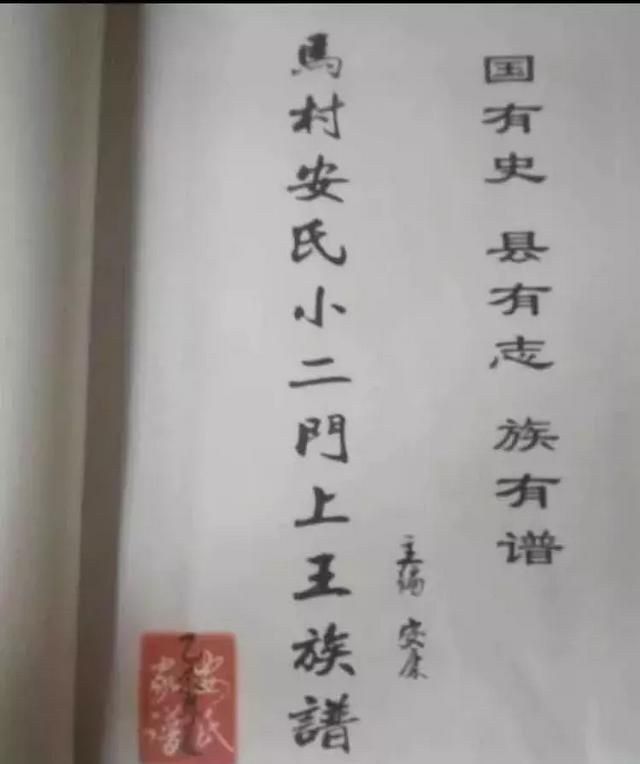 国有史 县有志 族有谱
主编 安康
馬村安氏小二門上王族譜
安氏
家譜